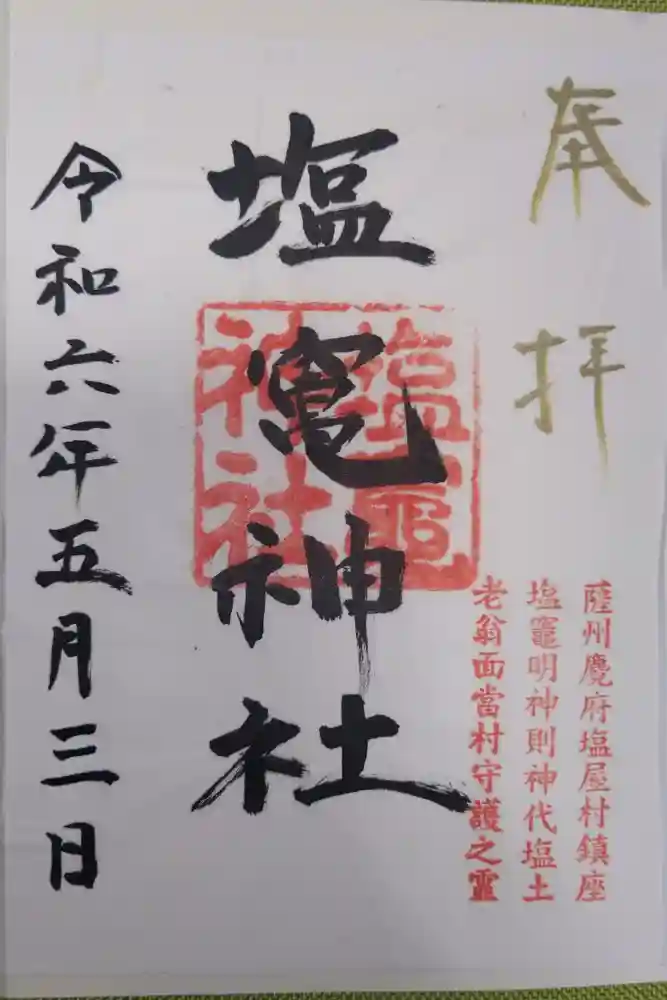 奉拝
薩州麑府塩屋村鎮座
塩竈明神則神代塩土
老翁面當村守護之霊
塩竈神社
塩竈神社
令和六年五月三日